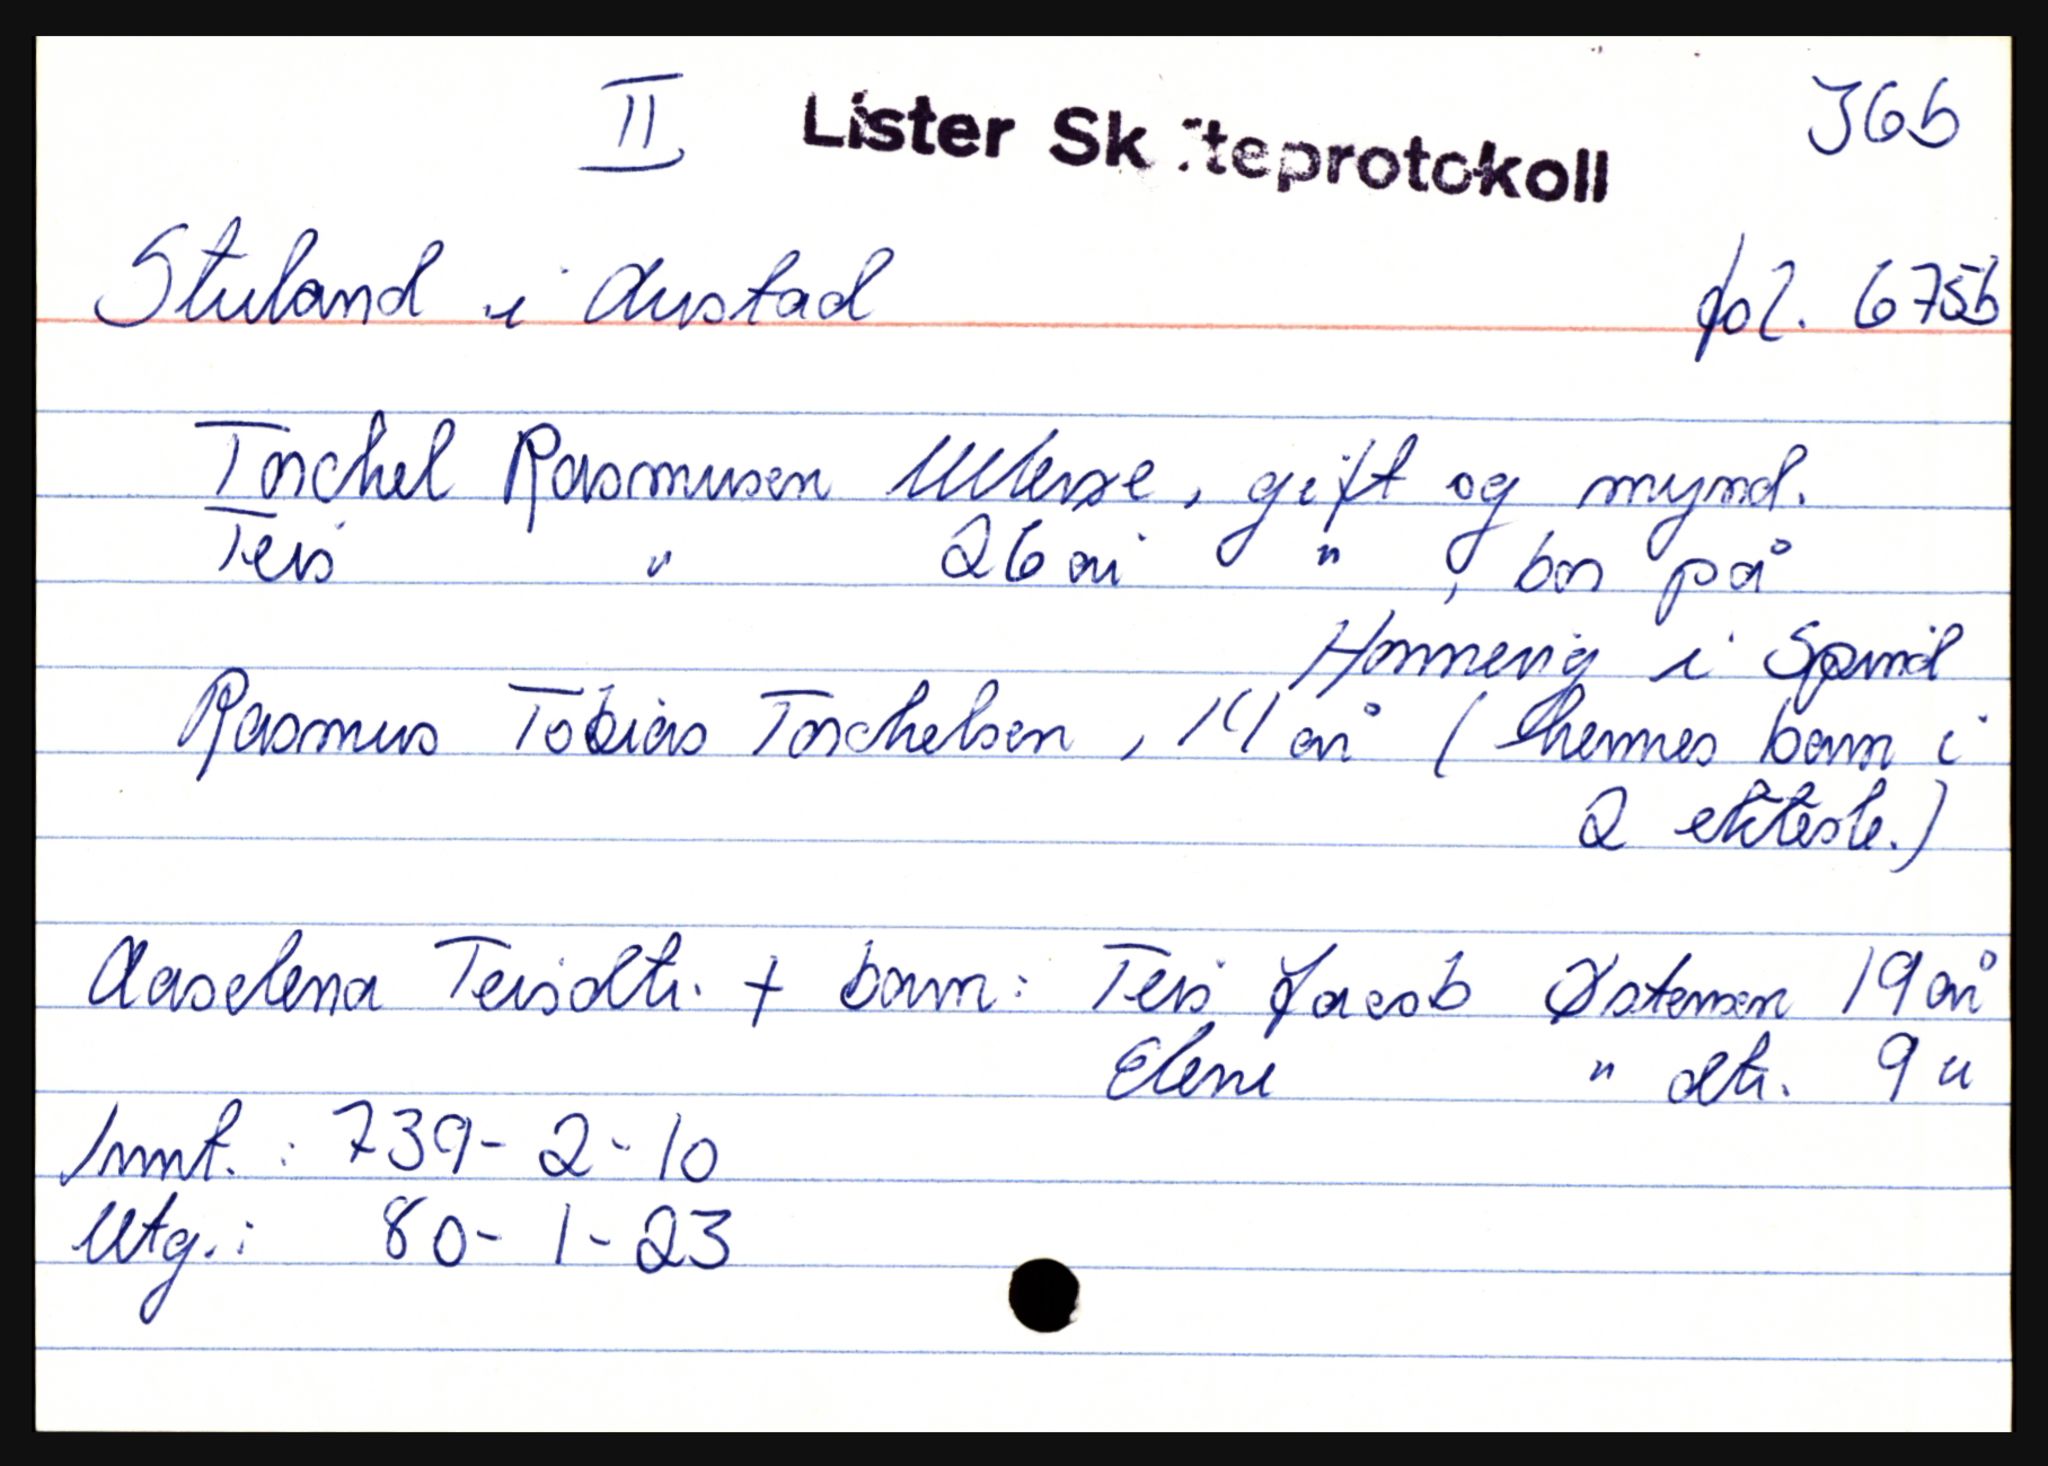 II Lister Skifteprotokoll J6b
Stuland i Austad fol. 675b
Torchel Rasmusen Ulleröe, gift og mynd.
Teis " 26 år " , bor på
Homevig i Spind
Rasmus Tobias Torchelsen, 14 år ( hennes barn i
2 ektesk.)
Aaselena Teisdtr. + barn: Teis Jacob Østensen 19 år
Elene " dtr. 9 "
Innt. : 739 - 2 - 10
Utg. : 80 - 1 - 23